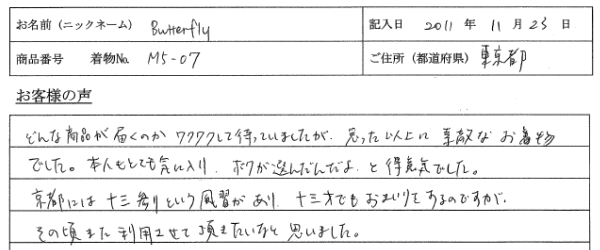 お名前（ニックネーム） Butterfly 記入日 2011 年 11 月 23 日
商品番号 着物No. M5-07 ご住所（都道府県） 東京都
お客様の声
どんな商品が届くのか ワクワクして待っていましたが、思った以上に 素敵な お着物
でした。本人もとても気に入り ボクが選んだんだよ と 得意気でした。
京都には 十三参り という 風習が あり、十三才でも おまいりをするのですが、
その頃また 利用させて 頂きたいなと 思いました。